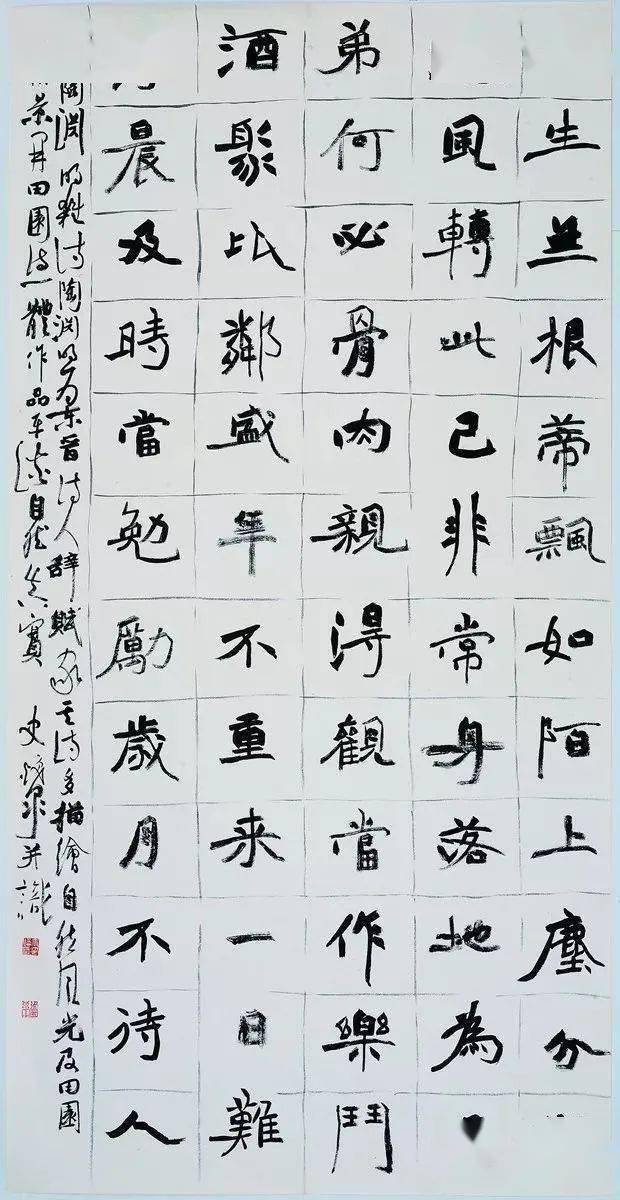 生無根蒂飄如陌上塵分
風轉此已非常身落地為
弟何必骨肉親得觀當作樂鬥
酒聚比鄰盛年不重来一日難
晨及時當勉勵歲月不待人
陶淵明雜诗陶淵明为東晋诗人辞賦家其诗多描繪自然風光及田園
景開田園诗一體作品平淡自然真實 史 并識